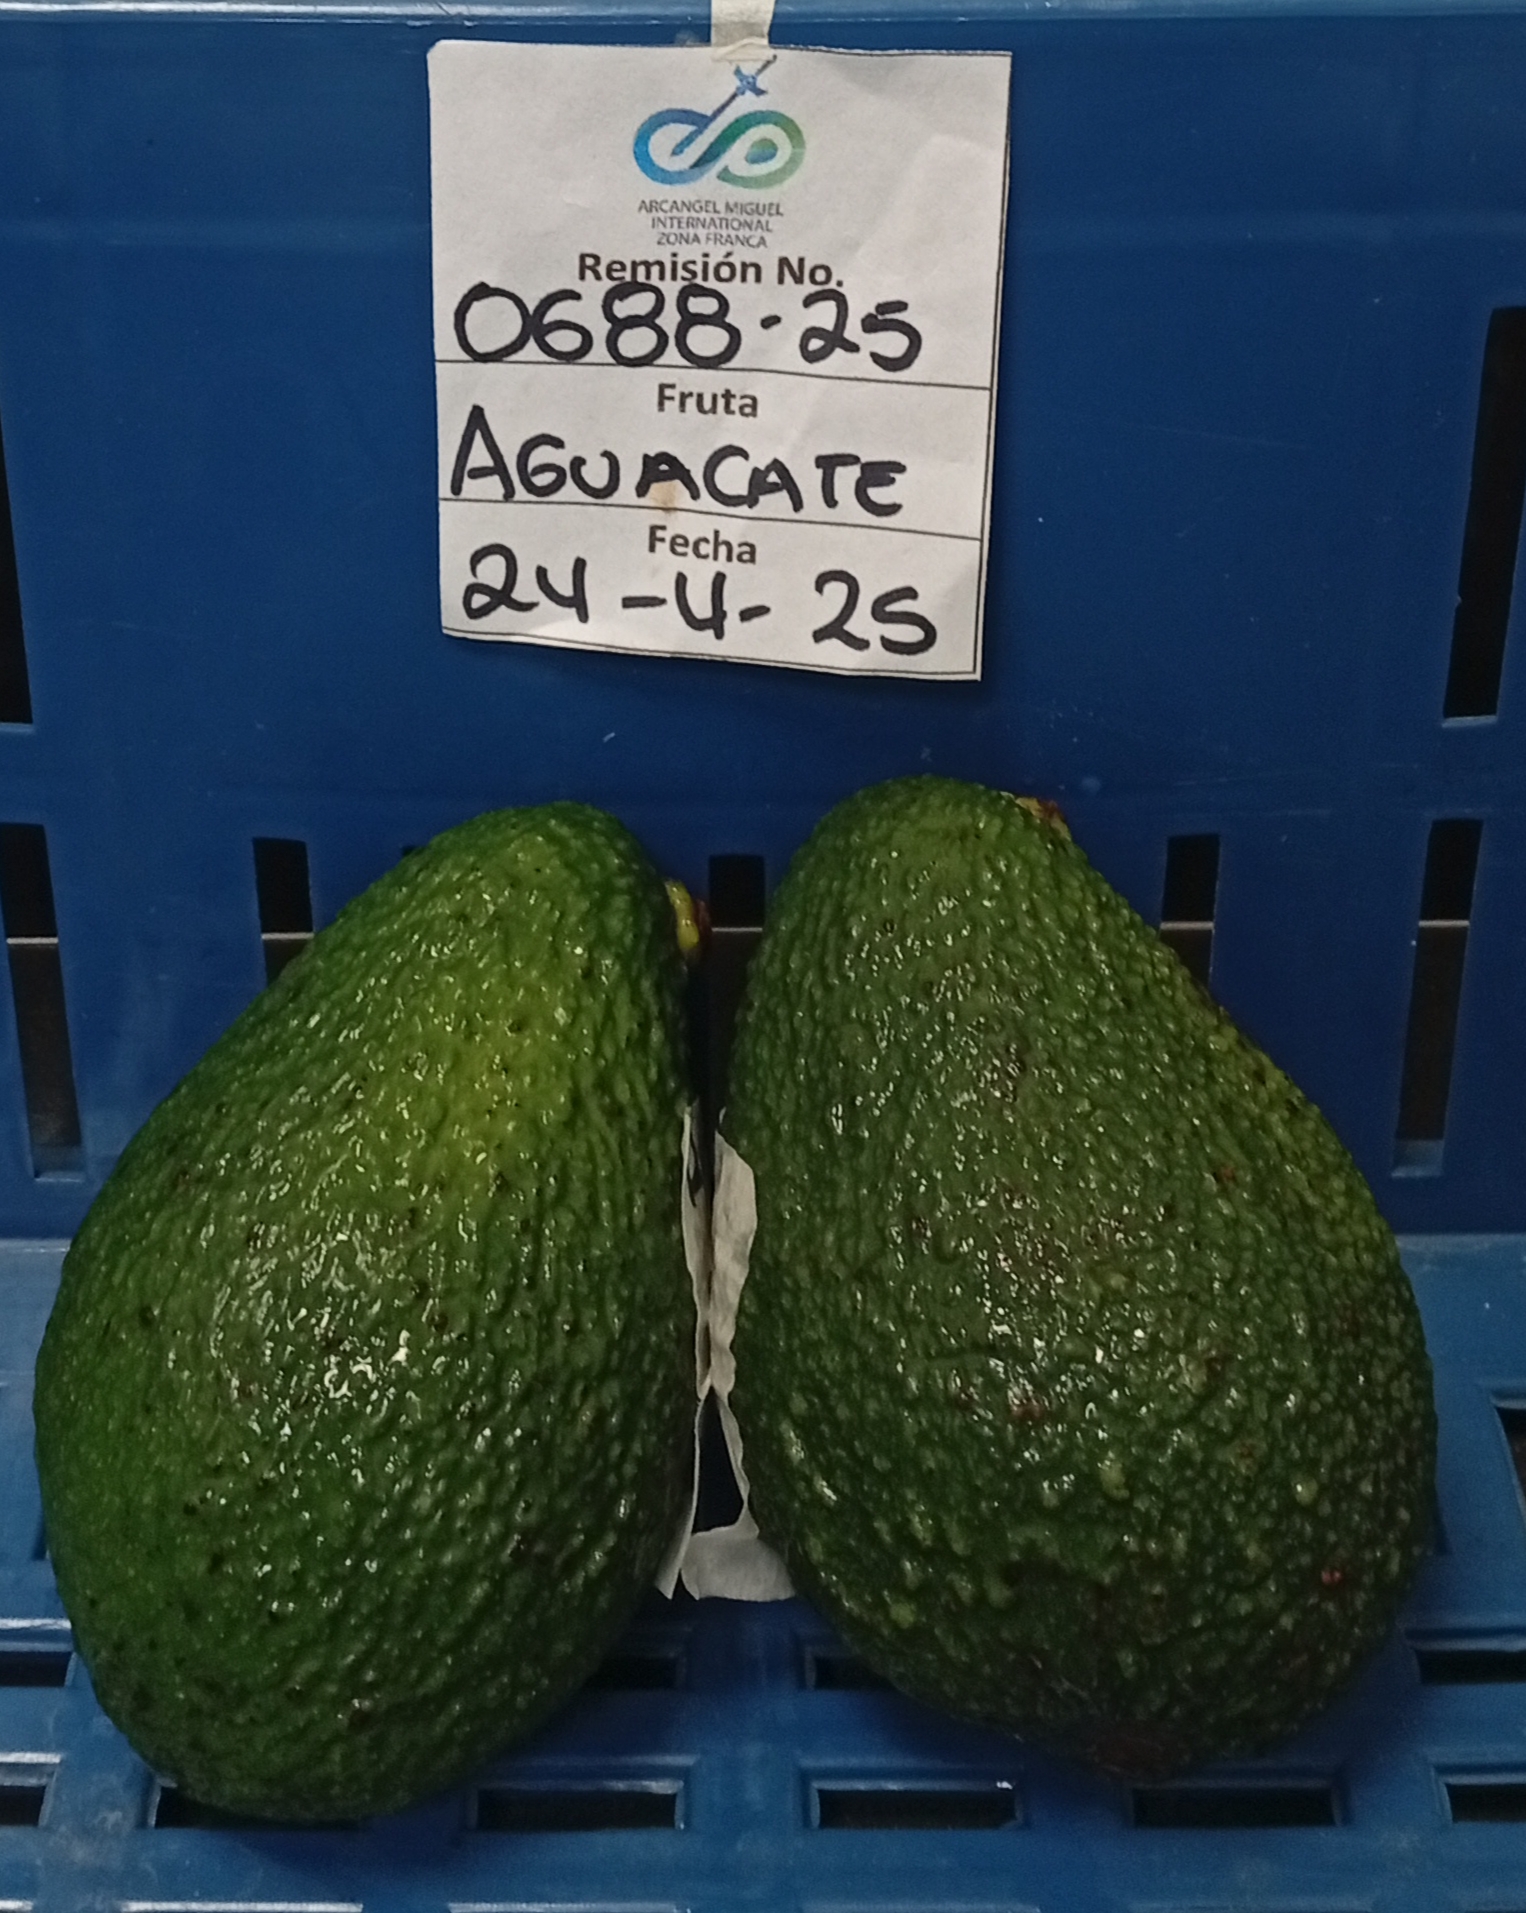 ARCANGEL MIGUEL
INTERNATIONAL
ZONA FRANCA
Remisión No.
0688-25
Fruta
AGUACATE
Fecha
24-4-25